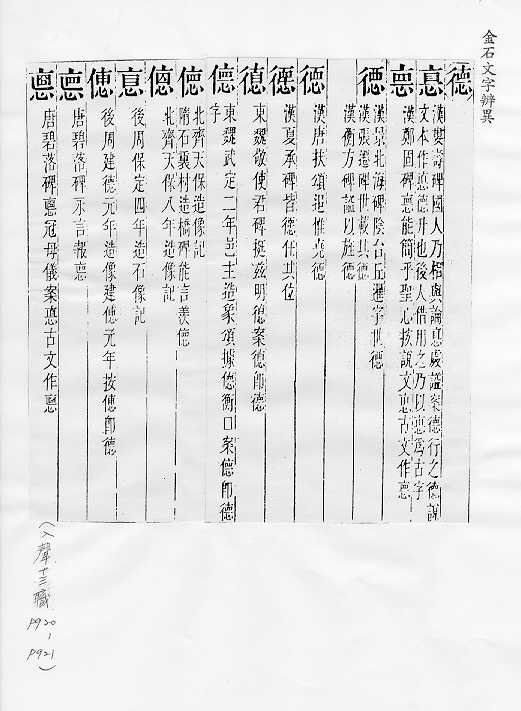 金石文字辨異
德
惪 漢婁壽碑國人乃相與論悳處謚案德行之德謀
文本作悳德升也後人借用之乃以悳為古字
悳 漢鄭固碑悳能簡乎聖心按說文悳古文作悳
德 漢景北海碑陰台丘暹字世德
漢張遷碑世載其德
漢衡方碑謚以旌德
德 漢唐扶頌追惟堯德
德 漢夏承碑皆德任其位
德 東魏敬使君碑挺兹明德案德即德
德 東魏武定二年邑主造象頌據德衡口案德即德
字
北齊天保造像記
隋石裏村造橋碑能言羨德
北齊天保八年造像記
後周保定四年造石像記
後周建德元年造像建德元年按德即德
悳 唐碧落碑永言報悳
悳 唐碧落碑悳冠母儀案悳古文作悳
(入聲十三職
P920-
P921)